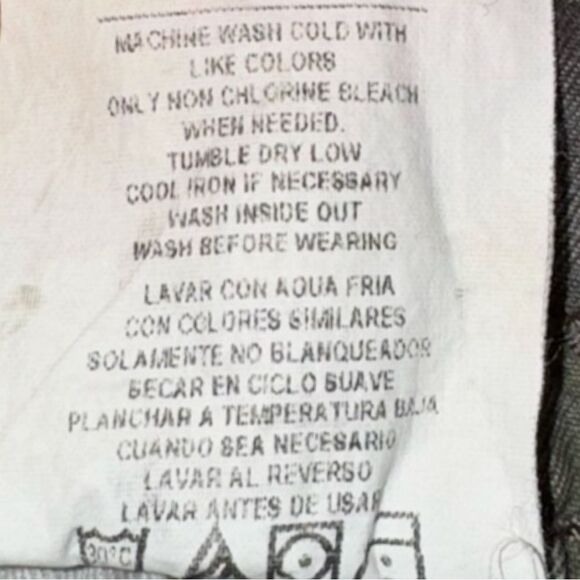 MACHINE WASH COLD WITH
LIKE COLORS
ONLY NON CHLORINE BLEACH
WHEN NEEDED.
TUMBLE DRY LOW
COOL IRON IF NECESSARY
WASH INSIDE OUT
WASH BEFORE WEARING
LAVAR CON AQUA FRIA
CON COLORES SIMILARES
SOLAMENTE NO BLANQUEADOR
SECAR EN CICLO SUAVE
PLANCHAR A TEMPERATURA BAJA
CUANDO SEA NECESARIO
LAVAR AL REVERSO
LAVAR ANTES DE USAR
30°C